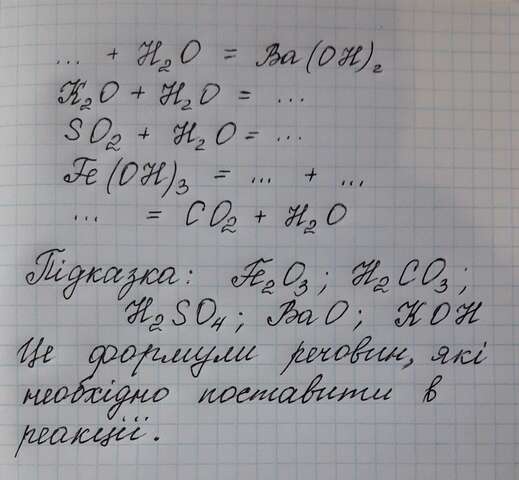 ... + H₂O = Ba(OH)₂
K₂O + H₂O = ...
SO₂ + H₂O = ...
Fe(OH)₃ = ... + ...
... = CO₂ + H₂O
Підказка: Fe₂O₃; H₂CO₃;
H₂SO₄; BaO; KOH
Це формули речовин, які
необхідно поставити в
реакції.